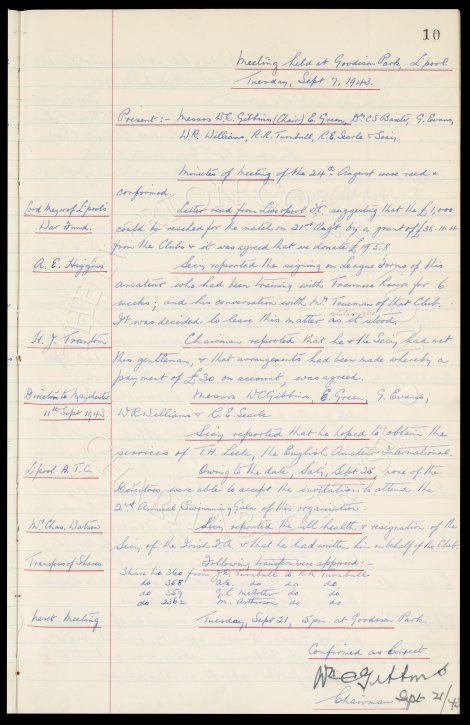 10
Meeting held at Goodison Park, L'pool
Tuesday, Sept 7, 1943.
Present :- Messrs W.C. Gibbins (Chair) E. Green, Dr. C.S. Baxter, G. Evans,
W.R. Williams, R.R. Turnbull, R.E. Searle & Secy.
Minutes of Meeting of the 24th August were read &
confirmed.
Lord Mayor of L'pool's
War Fund.
Letter read from Liverpool FC, suggesting that the £1,000
could be reached for the match on 21st Augst by a grant of £38-11-4
from the Clubs & it was agreed that we donate £19.5.8
A. E. Higgins
Secy reported the signing on League Forms of this
amateur who had been training with Tranmere Rovers for 6
weeks; and his conversation with Mr. Trueman of that Club.
It was decided to leave this matter as it stood.
H. J. Tranton
Chairman reported that he & the Secy had met
this gentleman, & that arrangements had been made whereby a
payment of £30 on account, was agreed.
Directors to Manchester
11th Sept 1943.
Messrs W C Gibbins, E. Green, G. Evans,
W R Williams & R E Searle
Secy reported that he hoped to obtain the
services of T.H. Leek, the English Amateur International.
L'pool A.T.C.
Owing to the date, Sat'y, Sept 25, none of the
Directors were able to accept the invitation to attend the
2nd Annual Swimming Gala of this organisation.
Mr Chas. Watson
Secy reported the ill-health & resignation of the
Secy of the Irish F.A. & that he had written him on behalf of the Club.
Transfers of Shares
Following transfers were approved :-
Share No 360 from J.C. Turnbull to R.R. Turnbull
do 358 do do do.
do 359 G.C. McArthur do do.
do 2362 M. do do
Next Meeting
Tuesday, Sept 21, 5 pm. at Goodison Park
Confirmed as Correct
Wm C Gibbins
Chairman Sept 21/43